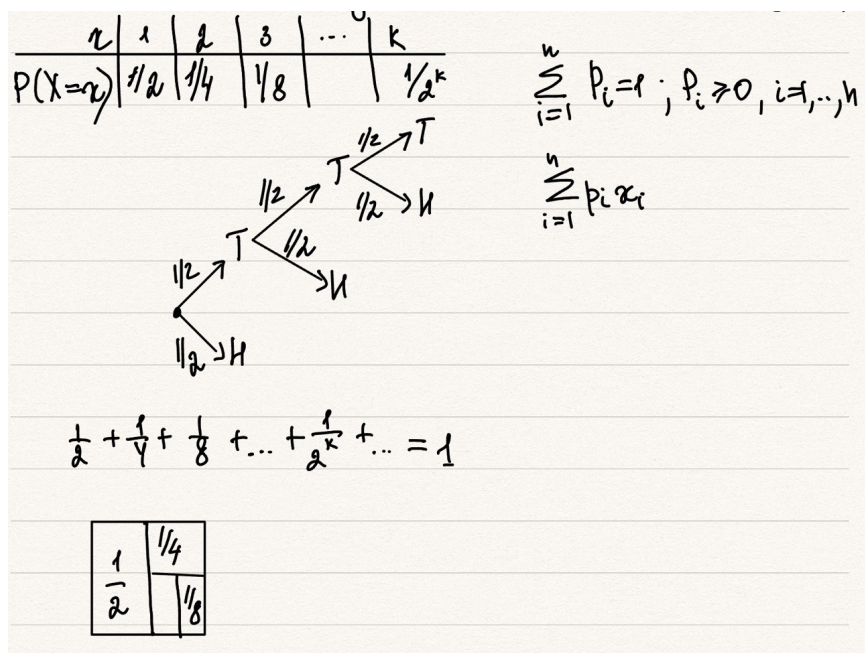 x | 1 | 2 | 3 | ... | k
P(X=x) | 1/2 | 1/4 | 1/8 | | 1/2^k
∑_{i=1}^{n} p_i = 1 ; p_i ≥ 0, i=1,..,n
∑_{i=1}^{n} p_i x_i
1/2 T
T
1/2
1/2 H
T
1/2
1/2
H
1/2
1/2 H
1/2 + 1/4 + 1/8 + ... + 1/2^k + ... = 1
1/2
1/4
1/8